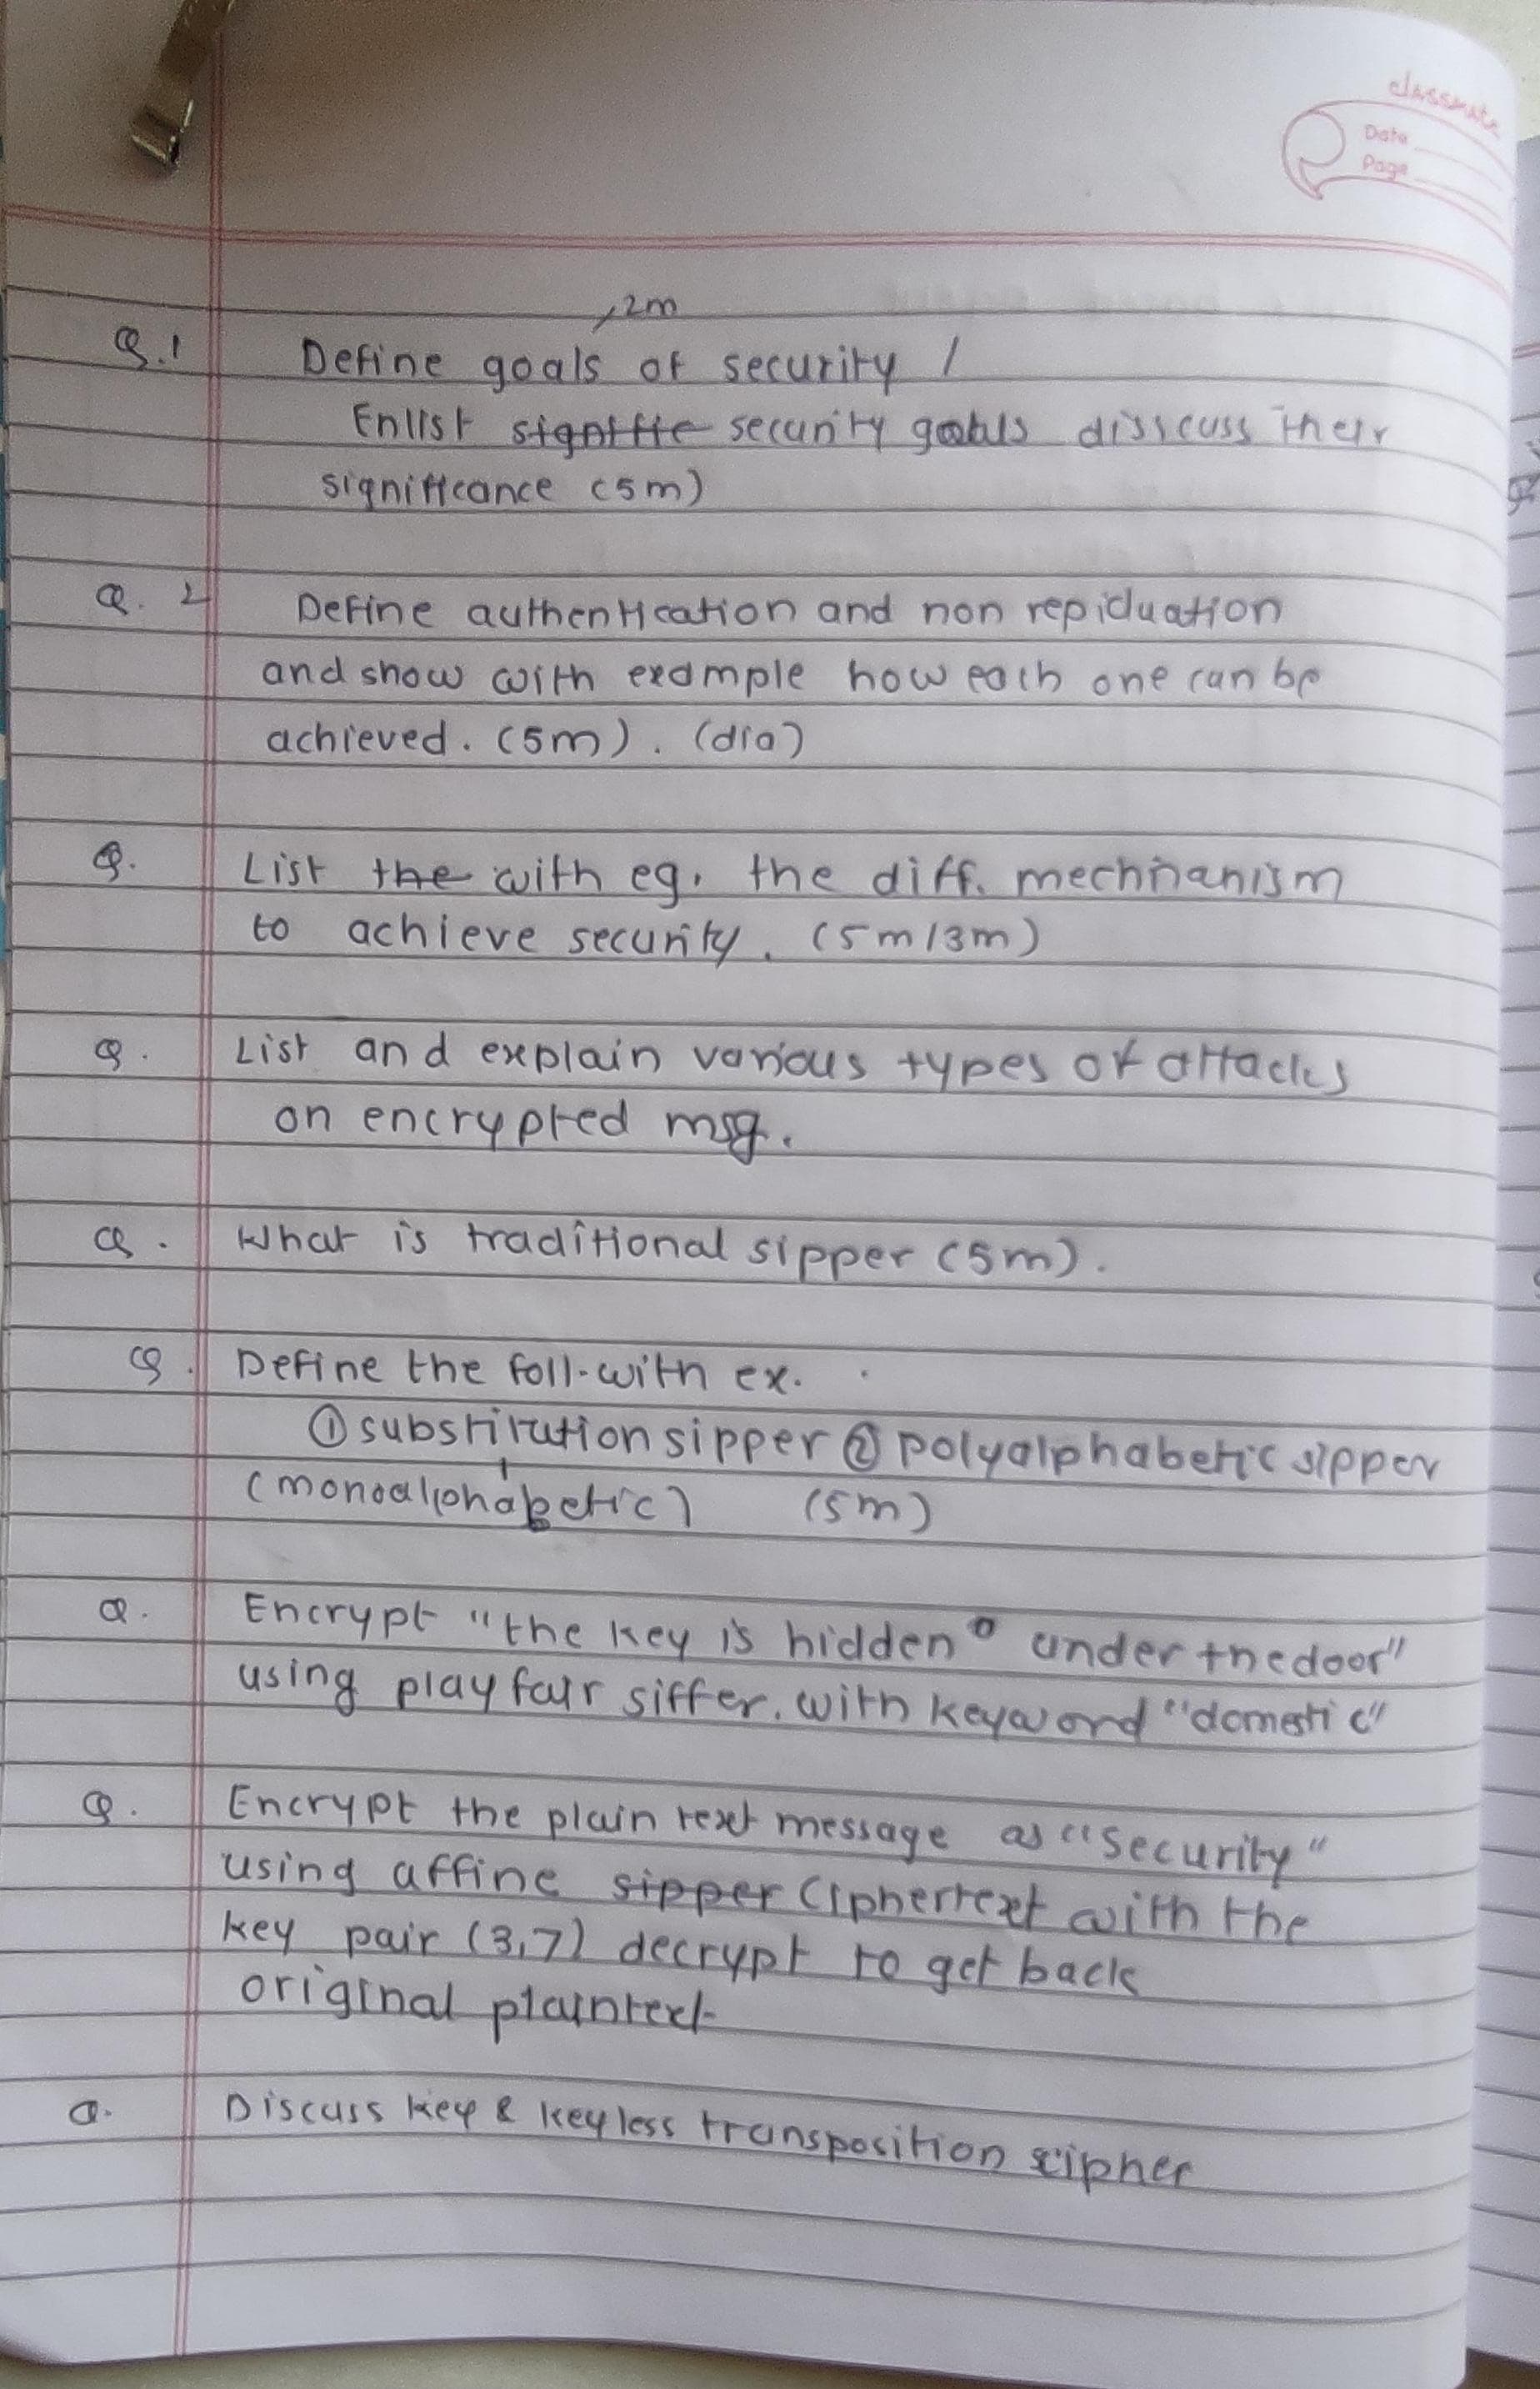 classmate
Date
Page
,2m
Q.1 Define goals of security /
Enlist signifie security goals disscuss their
significance (5m)
Q. 2 Define authentication and non repiduation
and show with example how each one can be
achieved. (5m). (dia)
Q. List the with eg. the diff. mechnanism
to achieve security. (5m/3m)
Q. List and explain various types of attacks
on encrypted msg.
Q. What is traditional sipper (5m).
Q. Define the foll. with ex.
① substitution sipper ② polyalphabetic sipper
(monoalphabetic) (5m)
Q. Encrypt "the key is hidden under the door"
using playfair siffer. with keyword "domestic"
Q. Encrypt the plain text message as "security"
using affine sipper Ciphertext with the
key pair (3,7) decrypt to get back
original plaintext
Q. Discuss key & keyless transposition cipher